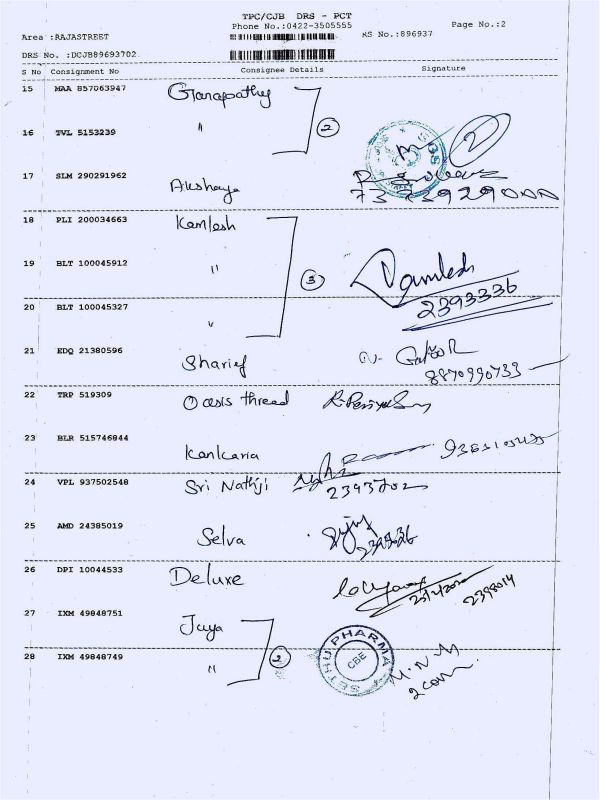 TPC/CJB DRS - PCT
Phone No.:0422-3505555
Page No.:2
Area :RAJASTREET
RS No.:896937
DRS No. :DCJB89693702
S No Consignment No Consignee Details Signature
15 MAA 857063947 Ganapathy
2
16 TVL 5153239 "
2
17 SLM 290291962 Akshaya
18 PLI 200034663 Kamlesh
19 BLT 100045912 "
3
Kamlesh
2393336
20 BLT 100045327 "
21 EDQ 21380596 Sharief
8870990733
22 TRP 519309 Oasis thread
23 BLR 515746844 Kankaria
24 VPL 937502548 Sri Nathji
2393202
25 AMD 24385019 Selva
26 DPI 10044533 Deluxe
2398014
27 IXM 49848751 Jaya
2
28 IXM 49848749 "
SETHU PHARMA
CBE